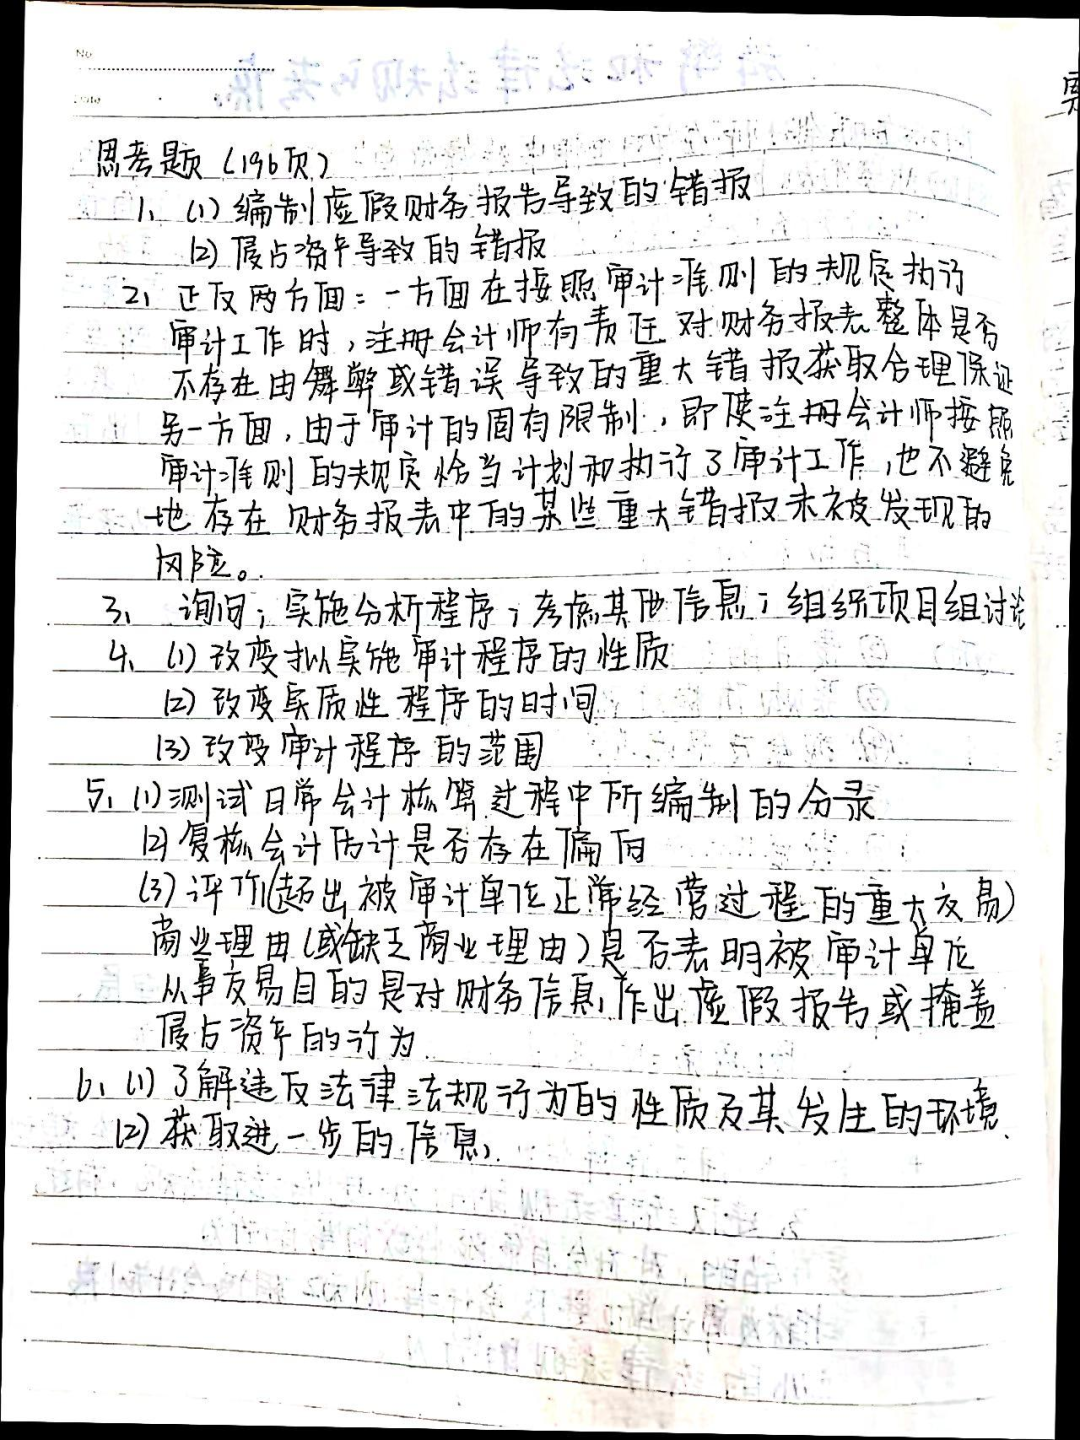 No
Date
思考题（196页）
1、(1) 编制虚假财务报告导致的错报
(2) 侵占资产导致的错报
2、正反两方面：一方面在按照审计准则的规定执行
审计工作时，注册会计师有责任对财务报表整体是否
不存在由舞弊或错误导致的重大错报获取合理保证
另一方面，由于审计的固有限制，即使注册会计师按照
审计准则的规定恰当计划和执行了审计工作，也不避免
地存在财务报表中的某些重大错报未被发现的
风险。
3、询问；实施分析程序；考虑其他信息；组织项目组讨论
4、(1) 改变拟实施审计程序的性质
(2) 改变实质性程序的时间
(3) 改变审计程序的范围
5、(1) 测试日常会计核算过程中所编制的分录
(2) 复核会计估计是否存在偏向
(3) 评价(超出被审计单位正常经营过程的重大交易)
商业理由(或缺乏商业理由)是否表明被审计单位
从事交易目的是对财务信息作出虚假报告或掩盖
侵占资产的行为
6、(1) 了解违反法律法规行为的性质及其发生的环境.
(2) 获取进一步的信息.